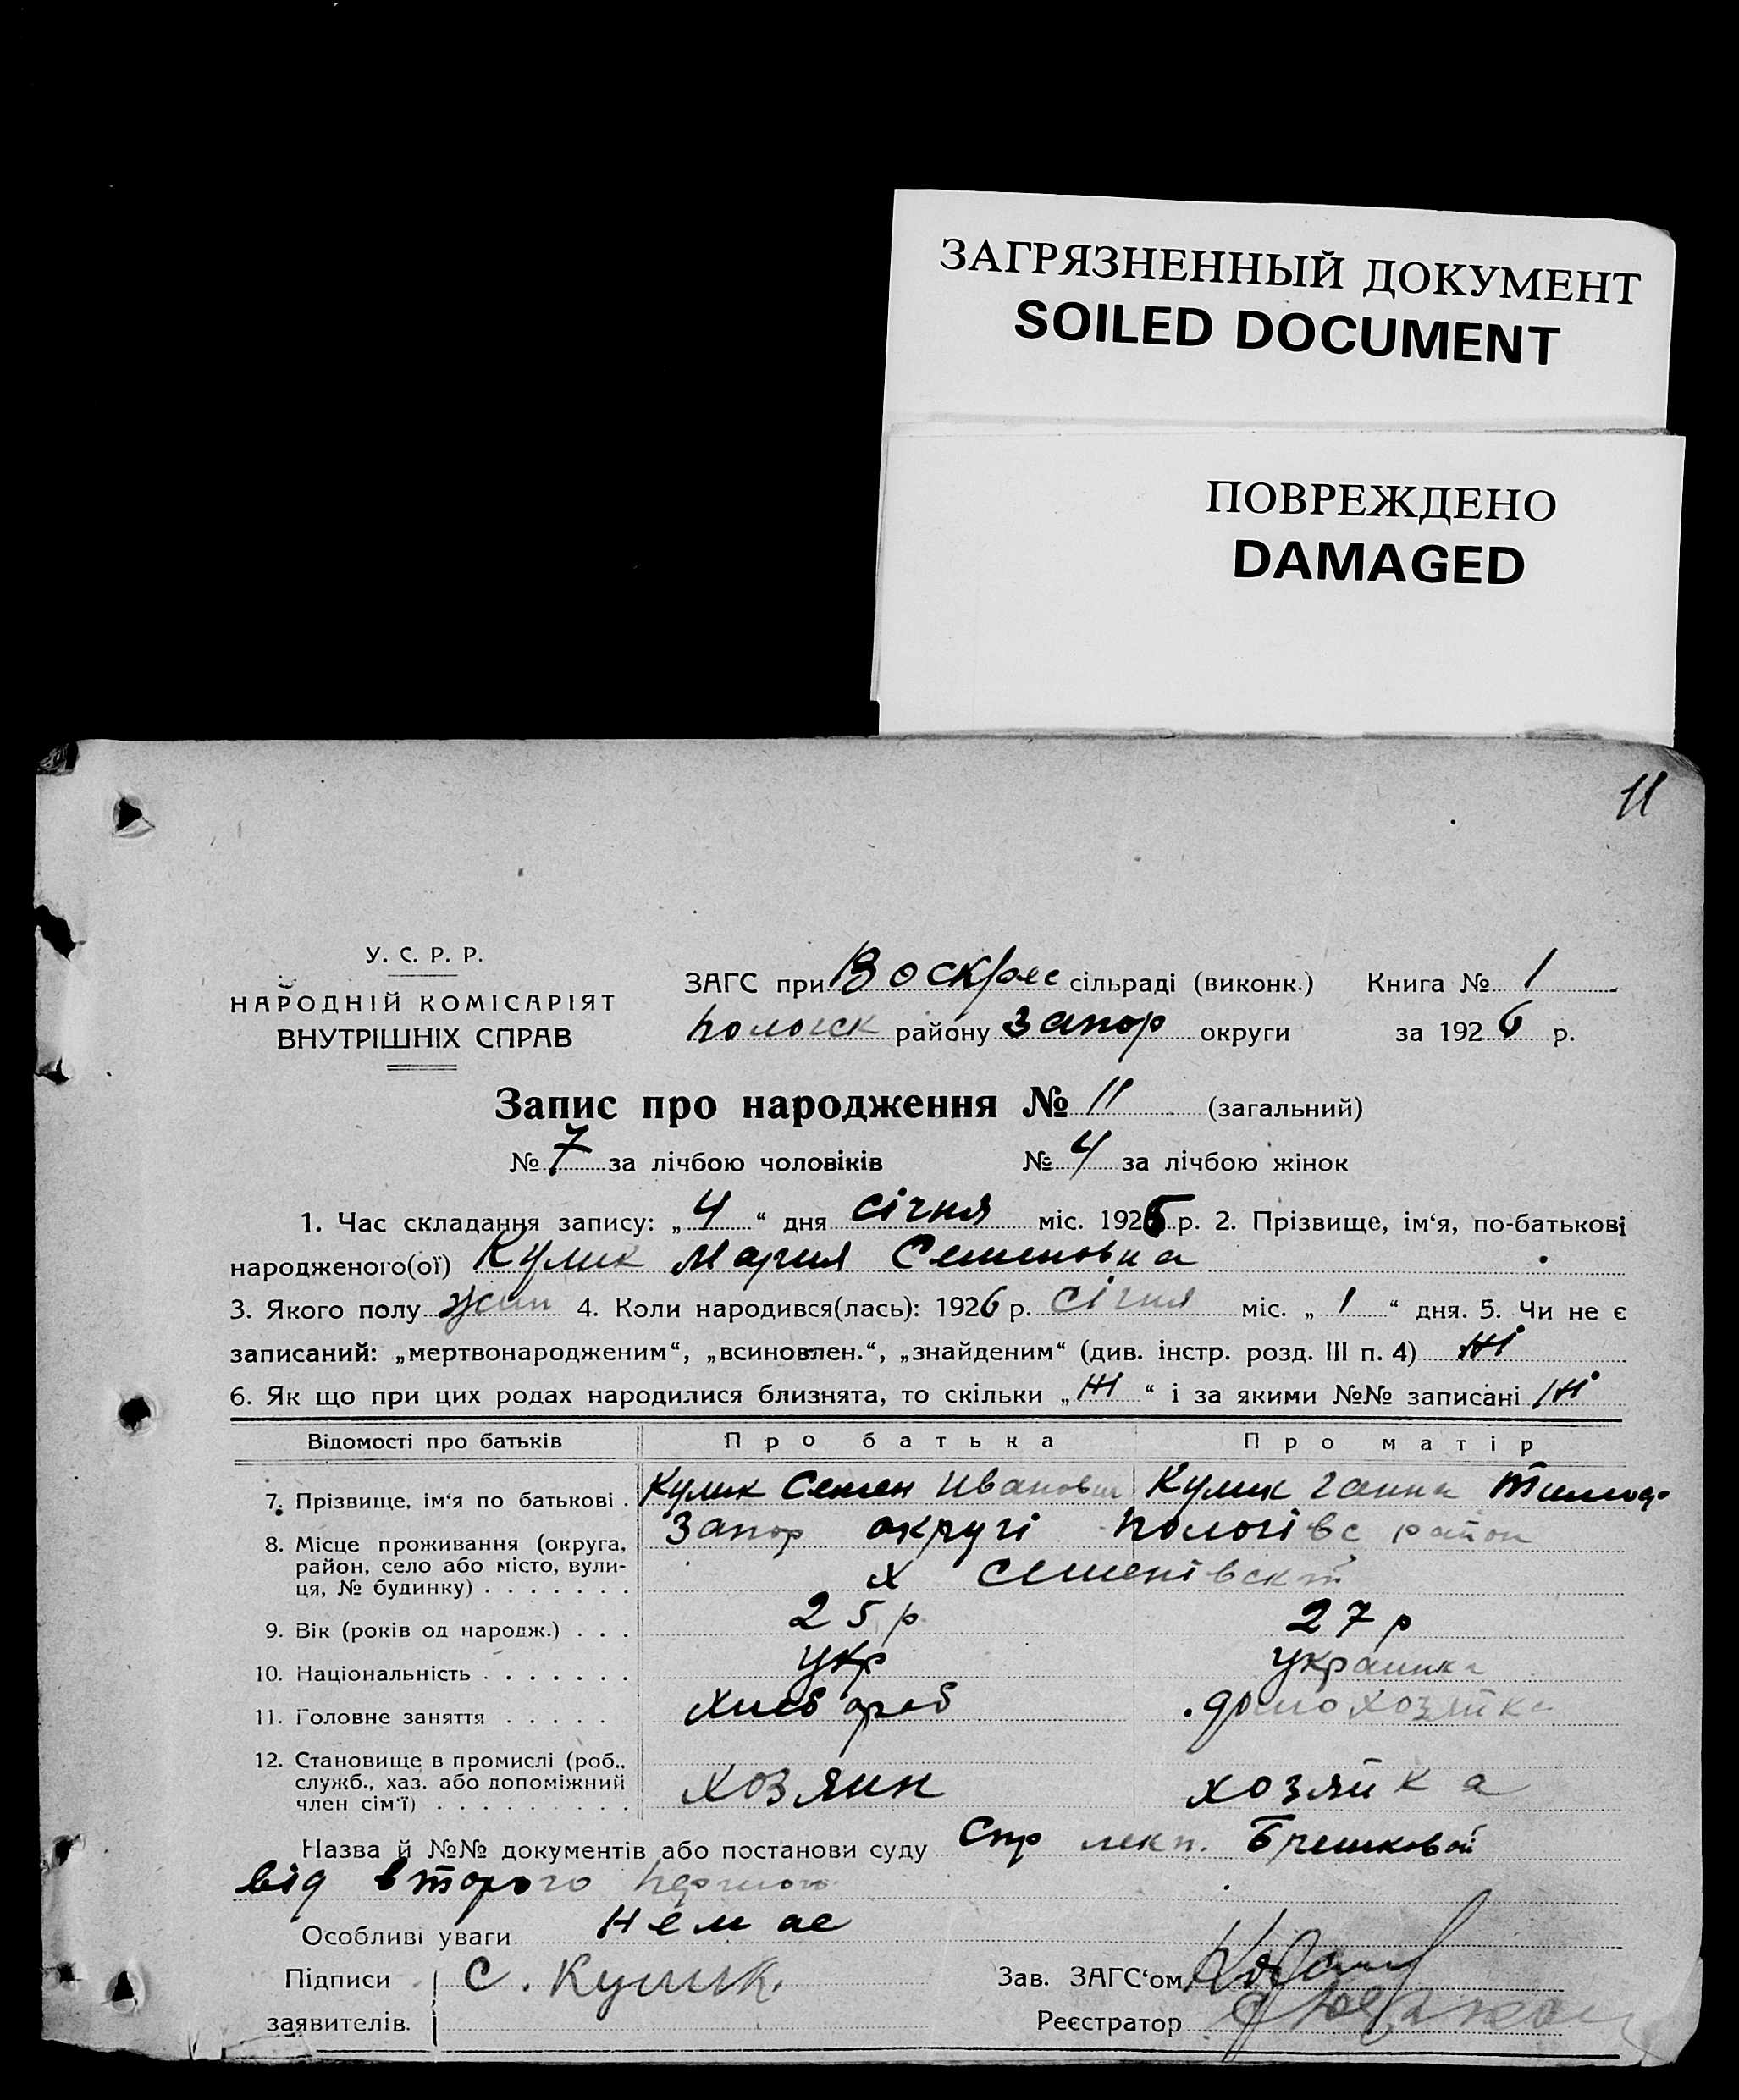 ЗАГРЯЗНЕННЫЙ ДОКУМЕНТ
SOILED DOCUMENT
ПОВРЕЖДЕНО
DAMAGED
11
У. С. Р. Р.
НАРОДНІЙ КОМІСАРІЯТ
ВНУТРІШНІХ СПРАВ
ЗАГС при Воскрес сільраді (виконк.) Книга № 1
пологск району Запор округи за 1926 р.
Запис про народження № 11 (загальний)
№ 7 за лічбою чоловіків № 4 за лічбою жінок
1. Час складання запису: „4“ дня січня міс. 1926 р. 2. Прізвище, ім‘я, по-батькові
народженого(ої) Кулик Мария Семеновна
3. Якого полу жин 4. Коли народився(лась): 1926 р. січня міс. „1“ дня. 5. Чи не є
записаний: „мертвонародженим“, „всиновлен.“, „знайденим“ (див. інстр. розд. III п. 4) ні
6. Як що при цих родах народилися близнята, то скільки „ні“ і за якими №№ записані ні
Відомості про батьків Про батька Про матір
7. Прізвище, ім‘я по батькові . Кулик Семен Иванович Кулик Ганна Тимоф.
8. Місце проживання (округа, Запор округі пологівс район
район, село або місто, вули-
ця, № будинку) . . . . . . . х Семенівскт
9. Вік (років од народж.) . . . 25 р 27 р
10. Національність . . . . . . . укр украинка
11. Головне заняття . . . . . хлебороб домохозяйка
12. Становище в промислі (роб.,
служб., хаз. або допоміжний
член сім‘ї) . . . . . . . . . хозяин хозяйка
Назва й №№ документів або постанови суду Спр лекп.
від второго
Особливі уваги немае
Підписи С. Кулик. Зав. ЗАГС‘ом
заявителів. Реєстратор